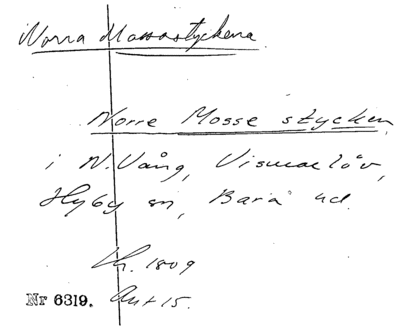 Norra Mossastyckena
Norre Mosse stycken
i N. Vång, Vismarlöv,
Hyby sn, Bara hd.
Lh. 1809
Nr 6319. Akt 15.